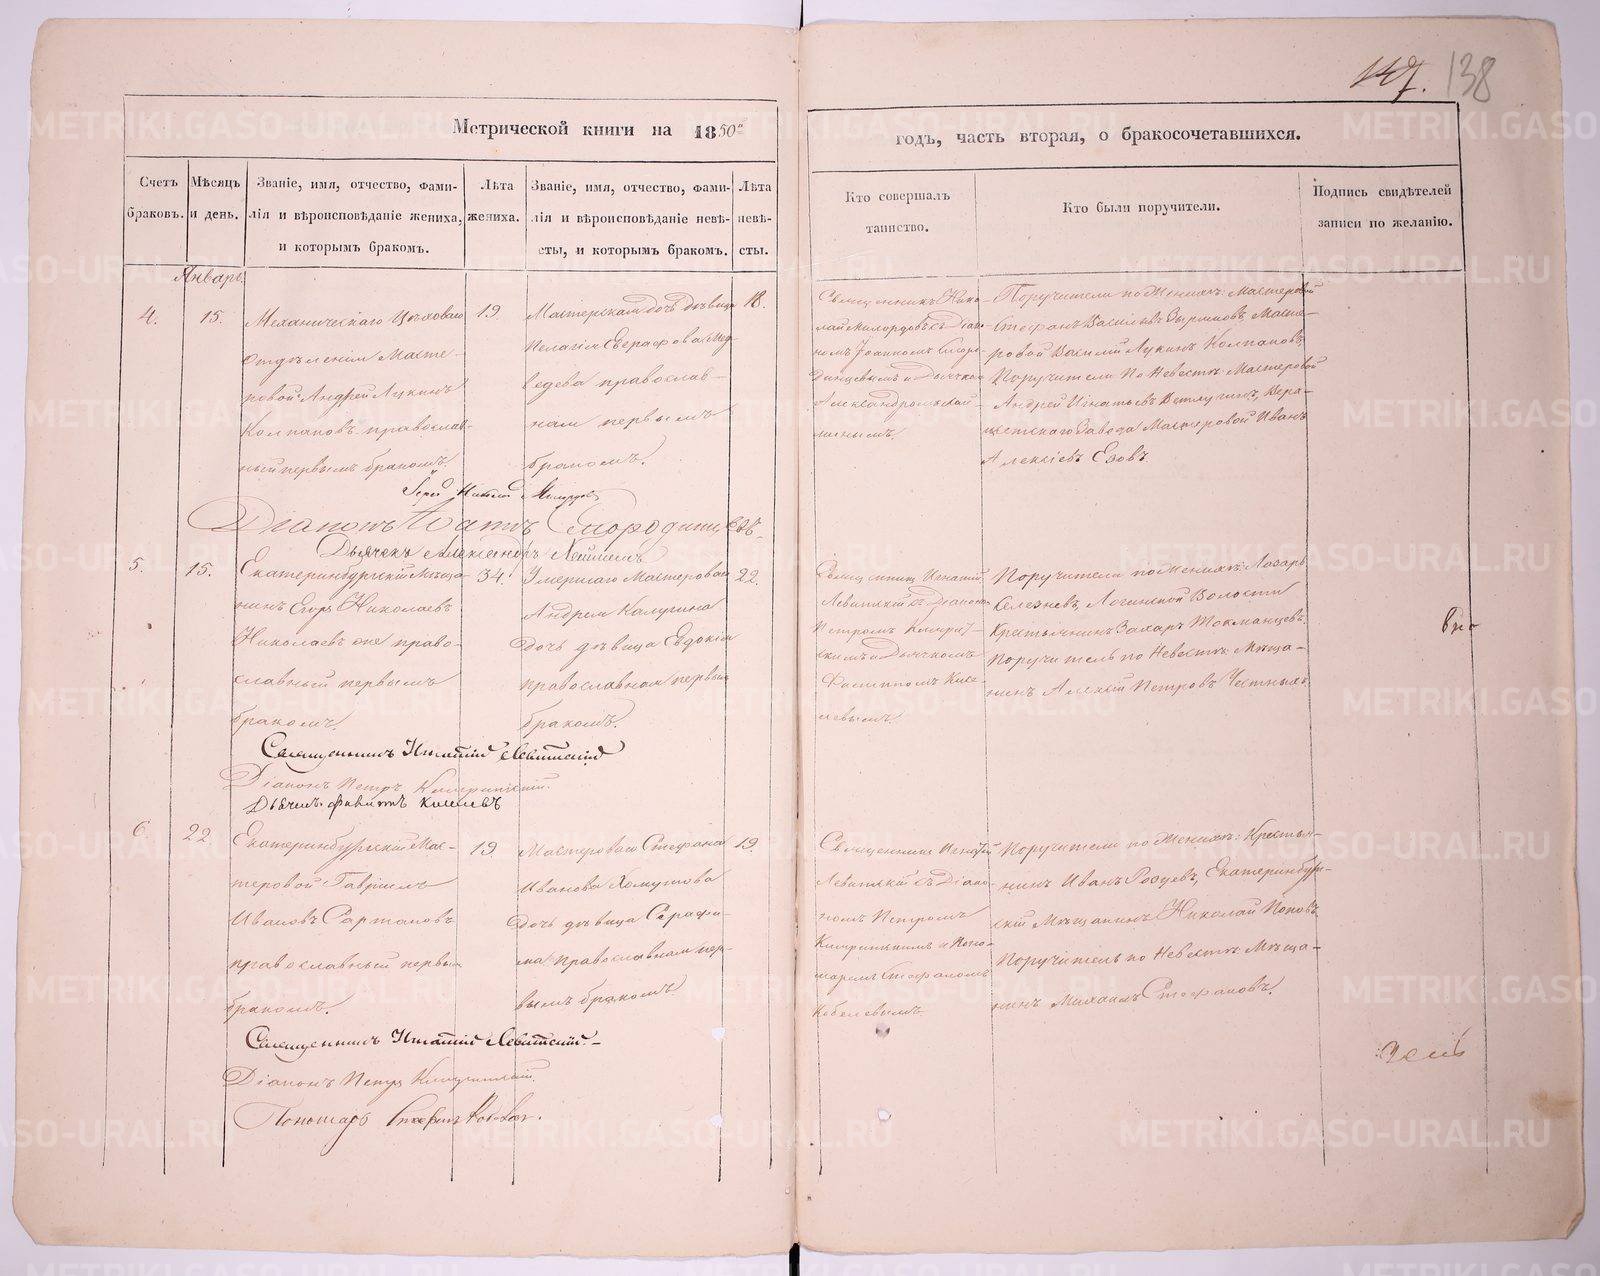 138
Метрической книги на 1850й
годъ, часть вторая, о бракосочетавшихся.
Счетъ браковъ.
Мѣсяцъ и день.
Званіе, имя, отчество, фами-
лія и вѣроисповѣданіе жениха,
и которымъ бракомъ.
Лѣта
жениха.
Званіе, имя, отчество, фами-
лія и вѣроисповѣданіе невѣ-
сты, и которымъ бракомъ.
Лѣта
невѣ-
сты.
Кто совершалъ
таинство.
Кто были поручители.
Подпись свидѣтелей
записи по желанію.
Январь
4.
15.
Механическаго Цеховаго
отдѣленія Масте-
ровой Андрей Лукинъ
Колпаковъ православ-
ный первымъ бракомъ.
19
Мастерская дочь дѣвица
Пелагія Евграфова Мед-
ведева православ-
ная первымъ
бракомъ.
18.
Священникъ Нико-
лай Милордовъ съ Діако-
номъ Іоанномъ Сморо-
динцевымъ и Дьячкомъ
Александромъ
Поручители по Женихѣ: Мастеровой
Стефанъ Васильевъ Зыряновъ, Масте-
ровой Василій Лукинъ Колпаковъ,
Поручители по Невестѣ: Мастеровой
Андрей Игнатьевъ Ветлугинъ,
Завода Мастеровой Иванъ
Алексіевъ Езовъ
Іерей Николай Милордовъ
Діаконъ Іоаннъ Смородинцевъ
Дьячекъ Александръ
5.
15.
Екатеринбургскій Мѣща-
нинъ Егоръ Николаевъ
Николаевъ же право-
славный первымъ
бракомъ
34.
Умершаго Мастероваго
Андрея Калугина
дочь дѣвица Евдокія
православная первымъ
бракомъ.
22.
Священникъ Игнатій
Левитскій съ Діакономъ
Петромъ
и Дьячкомъ
Филиппомъ Кисе-
левымъ.
Поручители по Женихѣ: Лазарь
Селезневъ, Логиновской Волости
Крестьянинъ Захаръ Токманцевъ.
Поручитель по Невестѣ: Мѣща-
нинъ Алексѣй Петровъ Честныхъ.
Священникъ Игнатій Левитскій
Діаконъ Петръ
Дьячекъ Филиппъ Киселевъ
6.
22
Екатеринбургскій Мас-
теровой Гавріилъ
Ивановъ Сартаковъ
православный первымъ
бракомъ.
19.
Мастероваго Стефана
Иванова Хомутова
дочь дѣвица Серафи-
ма православная пер-
вымъ бракомъ
19.
Священникъ Игнатій
Левитскій съ Діако-
номъ Петромъ
и Поно-
маремъ Стефаномъ
Кобелевымъ
Поручители по Женихѣ: Крестья-
нинъ Иванъ Екатеринбург-
скій Мѣщанинъ Николай Поповъ
Поручитель по Невестѣ: Мѣща-
нинъ Михаилъ Стефановъ.
Священникъ Игнатій Левитскій.
Діаконъ Петръ
Пономарь Стефанъ Кобелевъ.
METRIKI.GASO-URAL.RU